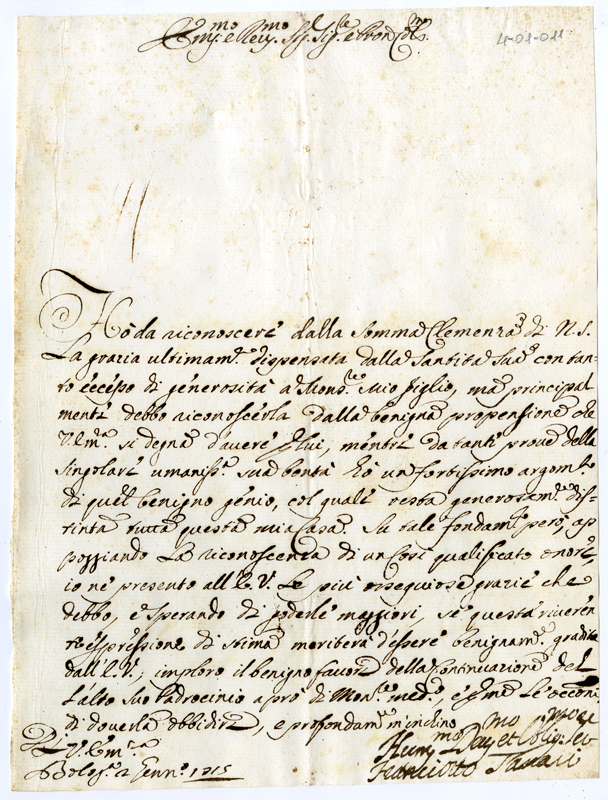 Em.mo e Rev.mo Sig. Sig.re e Pron Col.mo
4-01-011
Hò da riconoscere dalla somma Clemenza di N.S.
La grazia ultimam.te dispensata dalla Santità Sua con tan-
to eccesso di generosità a Mons.re Mio figlio, ma principal
mente debbo riconoscerla dalla benigna propensione che
V. Em.a si degna d'avere p lui, mentre da tante prove della
singolare umaniss.a sua bontà hò un fortissimo argom.to
di quel benigno genio, col quale resta generosam.te dis-
tinta tutta questa mia Casa. Su tale fondam.to però, ap
poggiando La riconoscenza di un così qualificato onore,
io ne presento all'E.V. Le più ossequiose grazie che
debbo, e sperando di goderle maggiori, se questa riveren
te espressione di stima meriterà d'essere benignam.te gradita
dall'E.V., imploro il benigno favore della Continuazione del
L'alto suo Padrocinio a prò di Mons.re med.o e
di doverla obbidire, e profondam.te m'inchino
D. V. Em.za
Bolog.a 2 Genn.o 1715
Hum.mo Dev.mo et Oblig. Ser.
Tanari